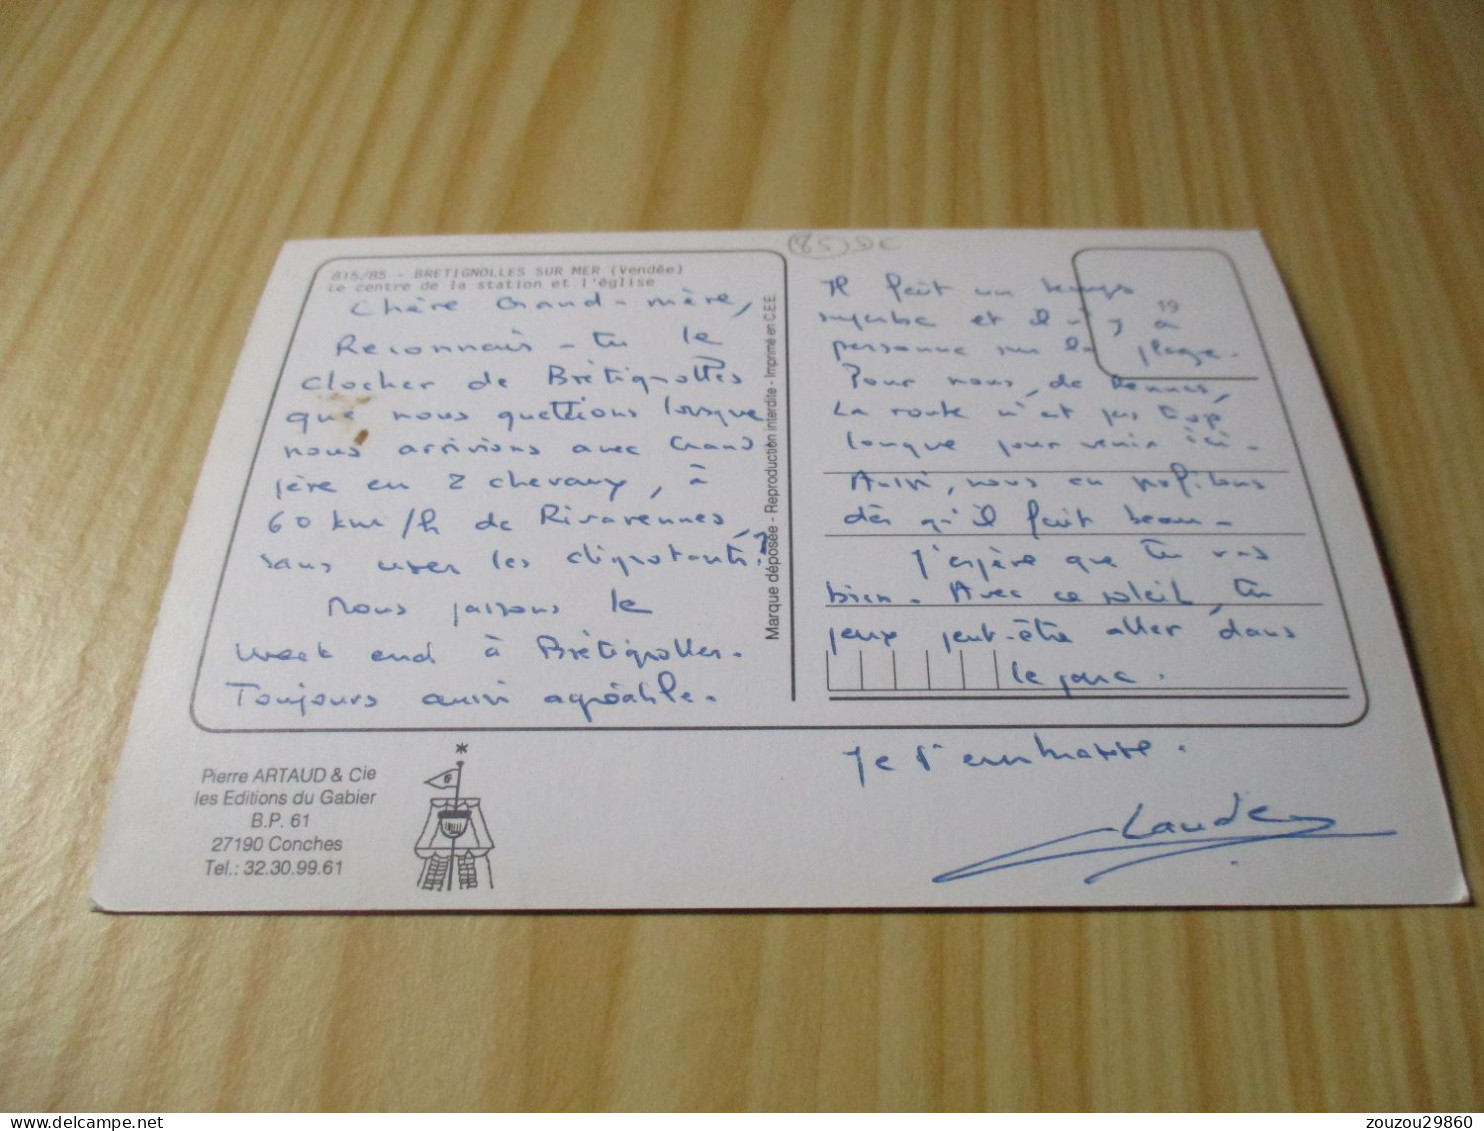 815/85 - BRETIGNOLLES SUR MER (Vendée)
Le centre de la station et l'église
Chère Grand-mère,
Reconnais-tu le
clocher de Brétignolles
que nous guettions lorsque
nous arrivions avec Grand
père en 2 chevaux, à
60 km/h de Rivarennes,
sans user les clignotants?
Nous passons le
week end à Brétignolles.
Toujours aussi agréable.
Marque déposée - Reproduction interdite - Imprimé en C.E.E.
(85) DC
19
Il fait un temps
superbe et il n'y a
personne sur la plage.
Pour nous, de Rennes,
la route n'est pas trop
longue pour venir ici.
Aussi, nous en profitons
dès qu'il fait beau.
J'espère que tu vas
bien. Avec ce soleil, tu
peux peut-être aller dans
le parc.
Je t'embrasse.
Claude
Pierre ARTAUD & Cie
les Editions du Gabier
B.P. 61
27190 Conches
Tel.: 32.30.99.61
zouzou29860